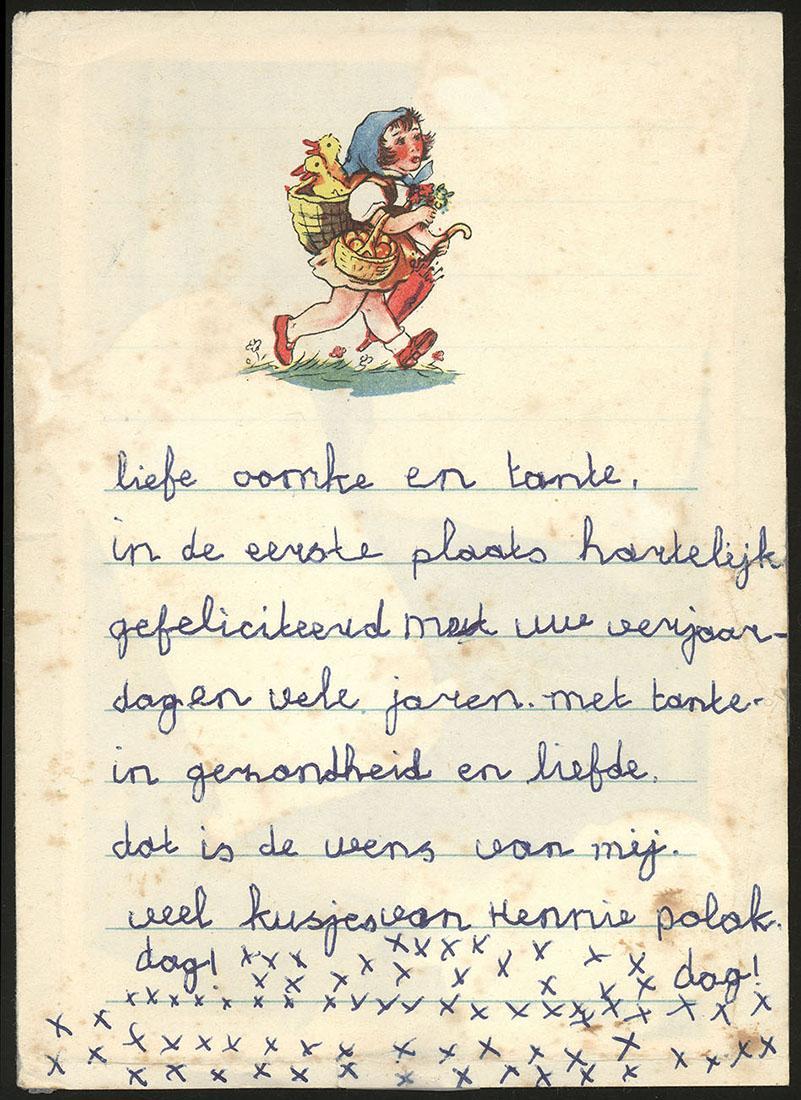 liefe oomke en tante.
in de eerste plaats hartelijk
gefeliciteerd met uw verjaar-
dagen vele jaren. met tante-
in gezondheid en liefde.
dat is de wens van mij.
veel kusjes van Hennie polak.
dag! x x x x x x x x x x x x x x x x x dag!